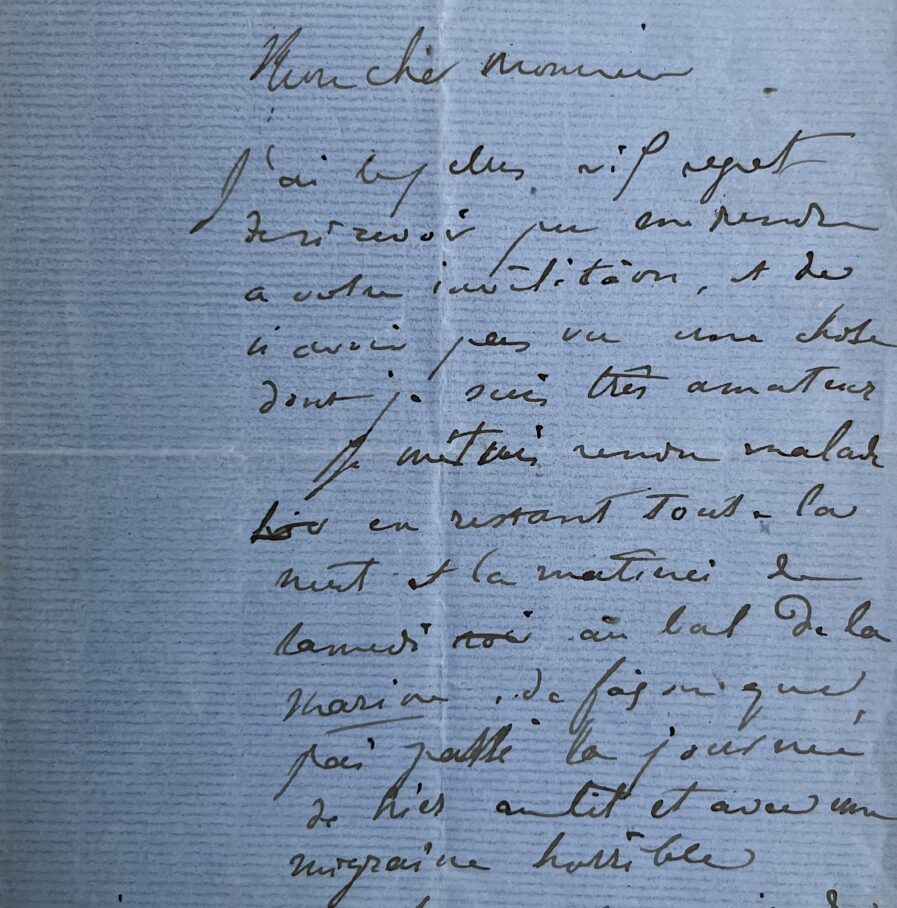 Mon cher monsieur
J'ai le plus vif regret
de n'avoir pu me rendre
a votre invitation, et de
n'avoir pas vu une chose
dont je suis très amateur
Je m'étais rendu malade
en restant toute la
nuit et la matinée de
samedi au bal de la
marine, de façon que
j'ai passé la journée
de hier au lit et avec une
migraine horrible